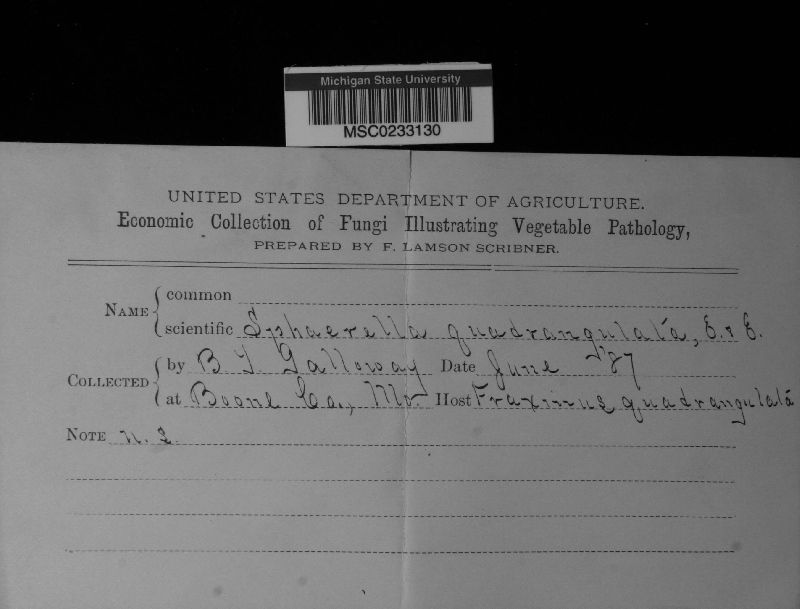 Michigan State University
MSC0233130
UNITED STATES DEPARTMENT OF AGRICULTURE.
Economic Collection of Fungi Illustrating Vegetable Pathology,
PREPARED BY F. LAMSON SCRIBNER.
NAME { common
scientific Sphaerella quadrangulata, E. & E.
COLLECTED { by B T Galloway Date June '87
at Boone Co., Mo. Host Fraxinus quadrangulata
NOTE n. s.